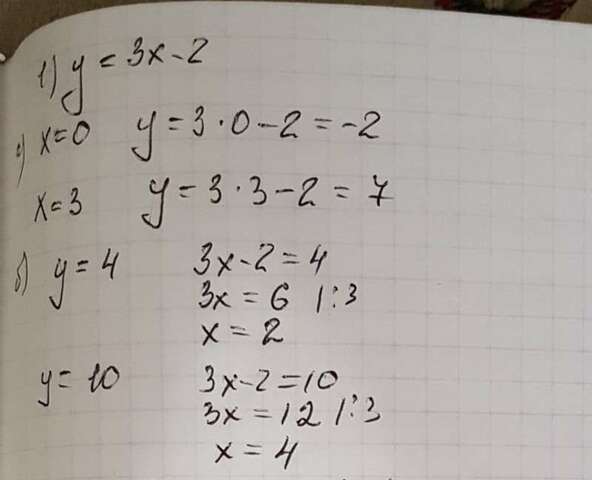 1) y = 3x - 2
а) x=0 y = 3 · 0 - 2 = -2
x=3 y = 3 · 3 - 2 = 7
б) y = 4 3x - 2 = 4
3x = 6 |:3
x = 2
y = 10 3x - 2 = 10
3x = 12 |:3
x = 4